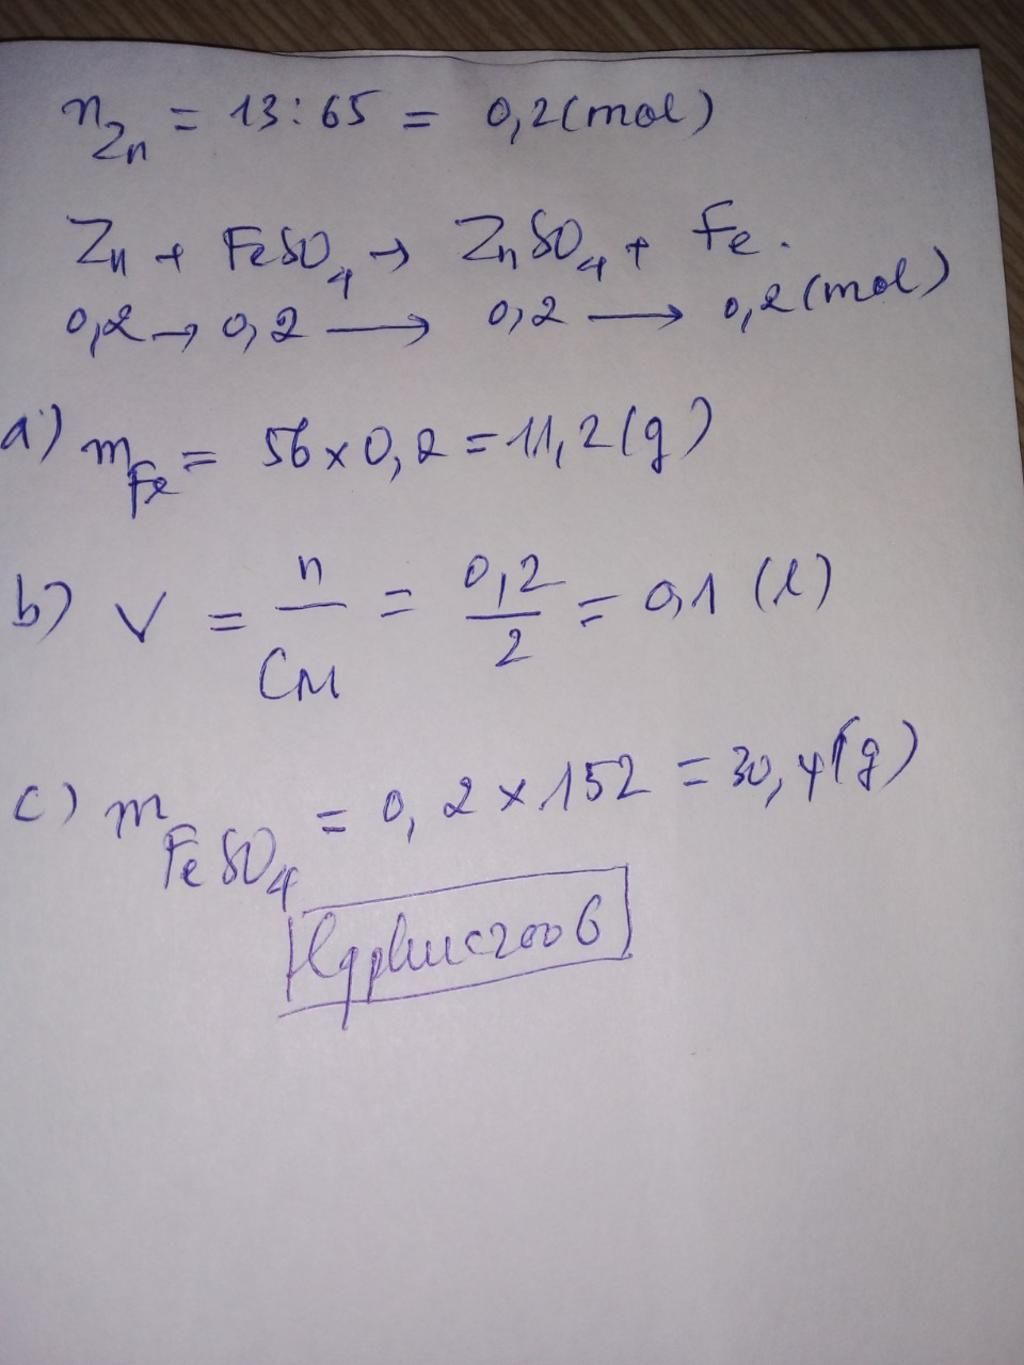 n_Zn = 13:65 = 0,2(mol)
Zn + FeSO4 → ZnSO4 + Fe.
0,2 → 0,2 → 0,2 → 0,2(mol)
a) m_Fe = 56 x 0,2 = 11,2(g)
b) V = n/CM = 0,2/2 = 0,1 (l)
c) m_FeSO4 = 0,2 x 152 = 30,4(g)